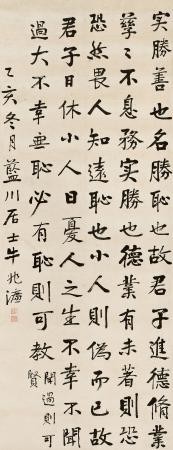 实勝善也名勝恥也故君子進德脩業
孳〻不息務实勝也德業有未著則恐
恐然畏人知遠恥也小人則偽而已故
君子日休小人日憂人之生不幸不聞
過大不幸無恥必有恥則可教聞過則可
賢
乙亥冬月藍川居士牛兆濂